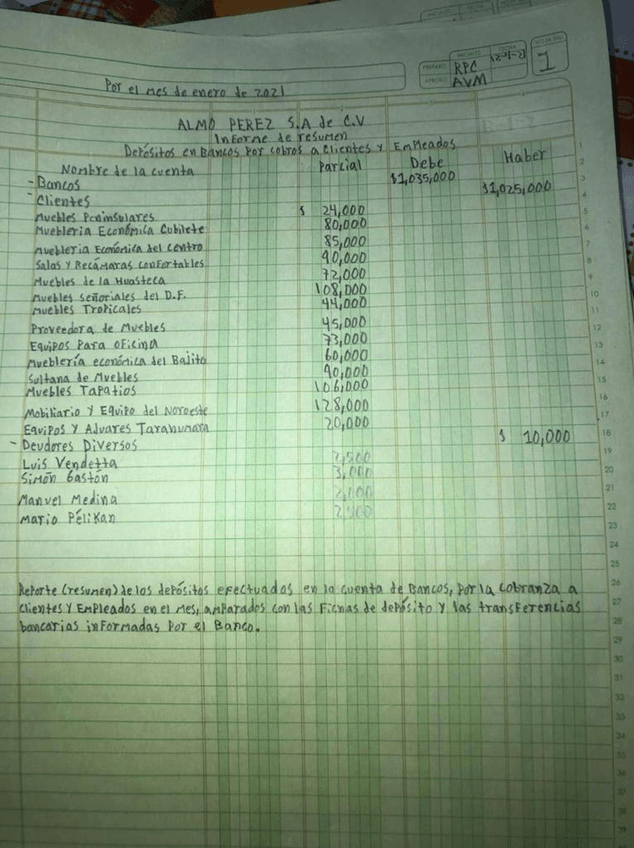 PREPARO RPC 12-1-21
APROBO AVM
1
Por el mes de enero de 2021
ALMO PEREZ S.A de C.V
Informe de resumen
Depósitos en Bancos Por cobros a Clientes y Empleados
Nombre de la cuenta Parcial Debe Haber
- Bancos $1,035,000
- Clientes $1,025,000
Muebles Peninsulares $ 24,000
Muebleria Económica Cubilete 80,000
Muebleria Económica del Centro 85,000
Salas y Recámaras Confortables 90,000
Muebles de la Huasteca 72,000
Muebles señoriales del D.F. 108,000
Muebles Tropicales 44,000
Proveedora de Muebles 45,000
Equipos Para oficina 73,000
Mueblería económica del Bajito 60,000
Sultana de Muebles 90,000
Muebles Tapatios 106,000
Mobiliario y Equipo del Noroeste 128,000
Equipos y Advares Tarahumara 20,000
- Deudores Diversos $ 10,000
Luis Vendetta 2,500
Simón Gastón 3,000
Manuel Medina 2,000
Mario Pélikan 2,500
Reporte (resumen) de los depósitos efectuados en la cuenta de Bancos, por la cobranza a
Clientes y Empleados en el mes, amparados con las Fichas de depósito y las transferencias
bancarias informadas Por el Banco.